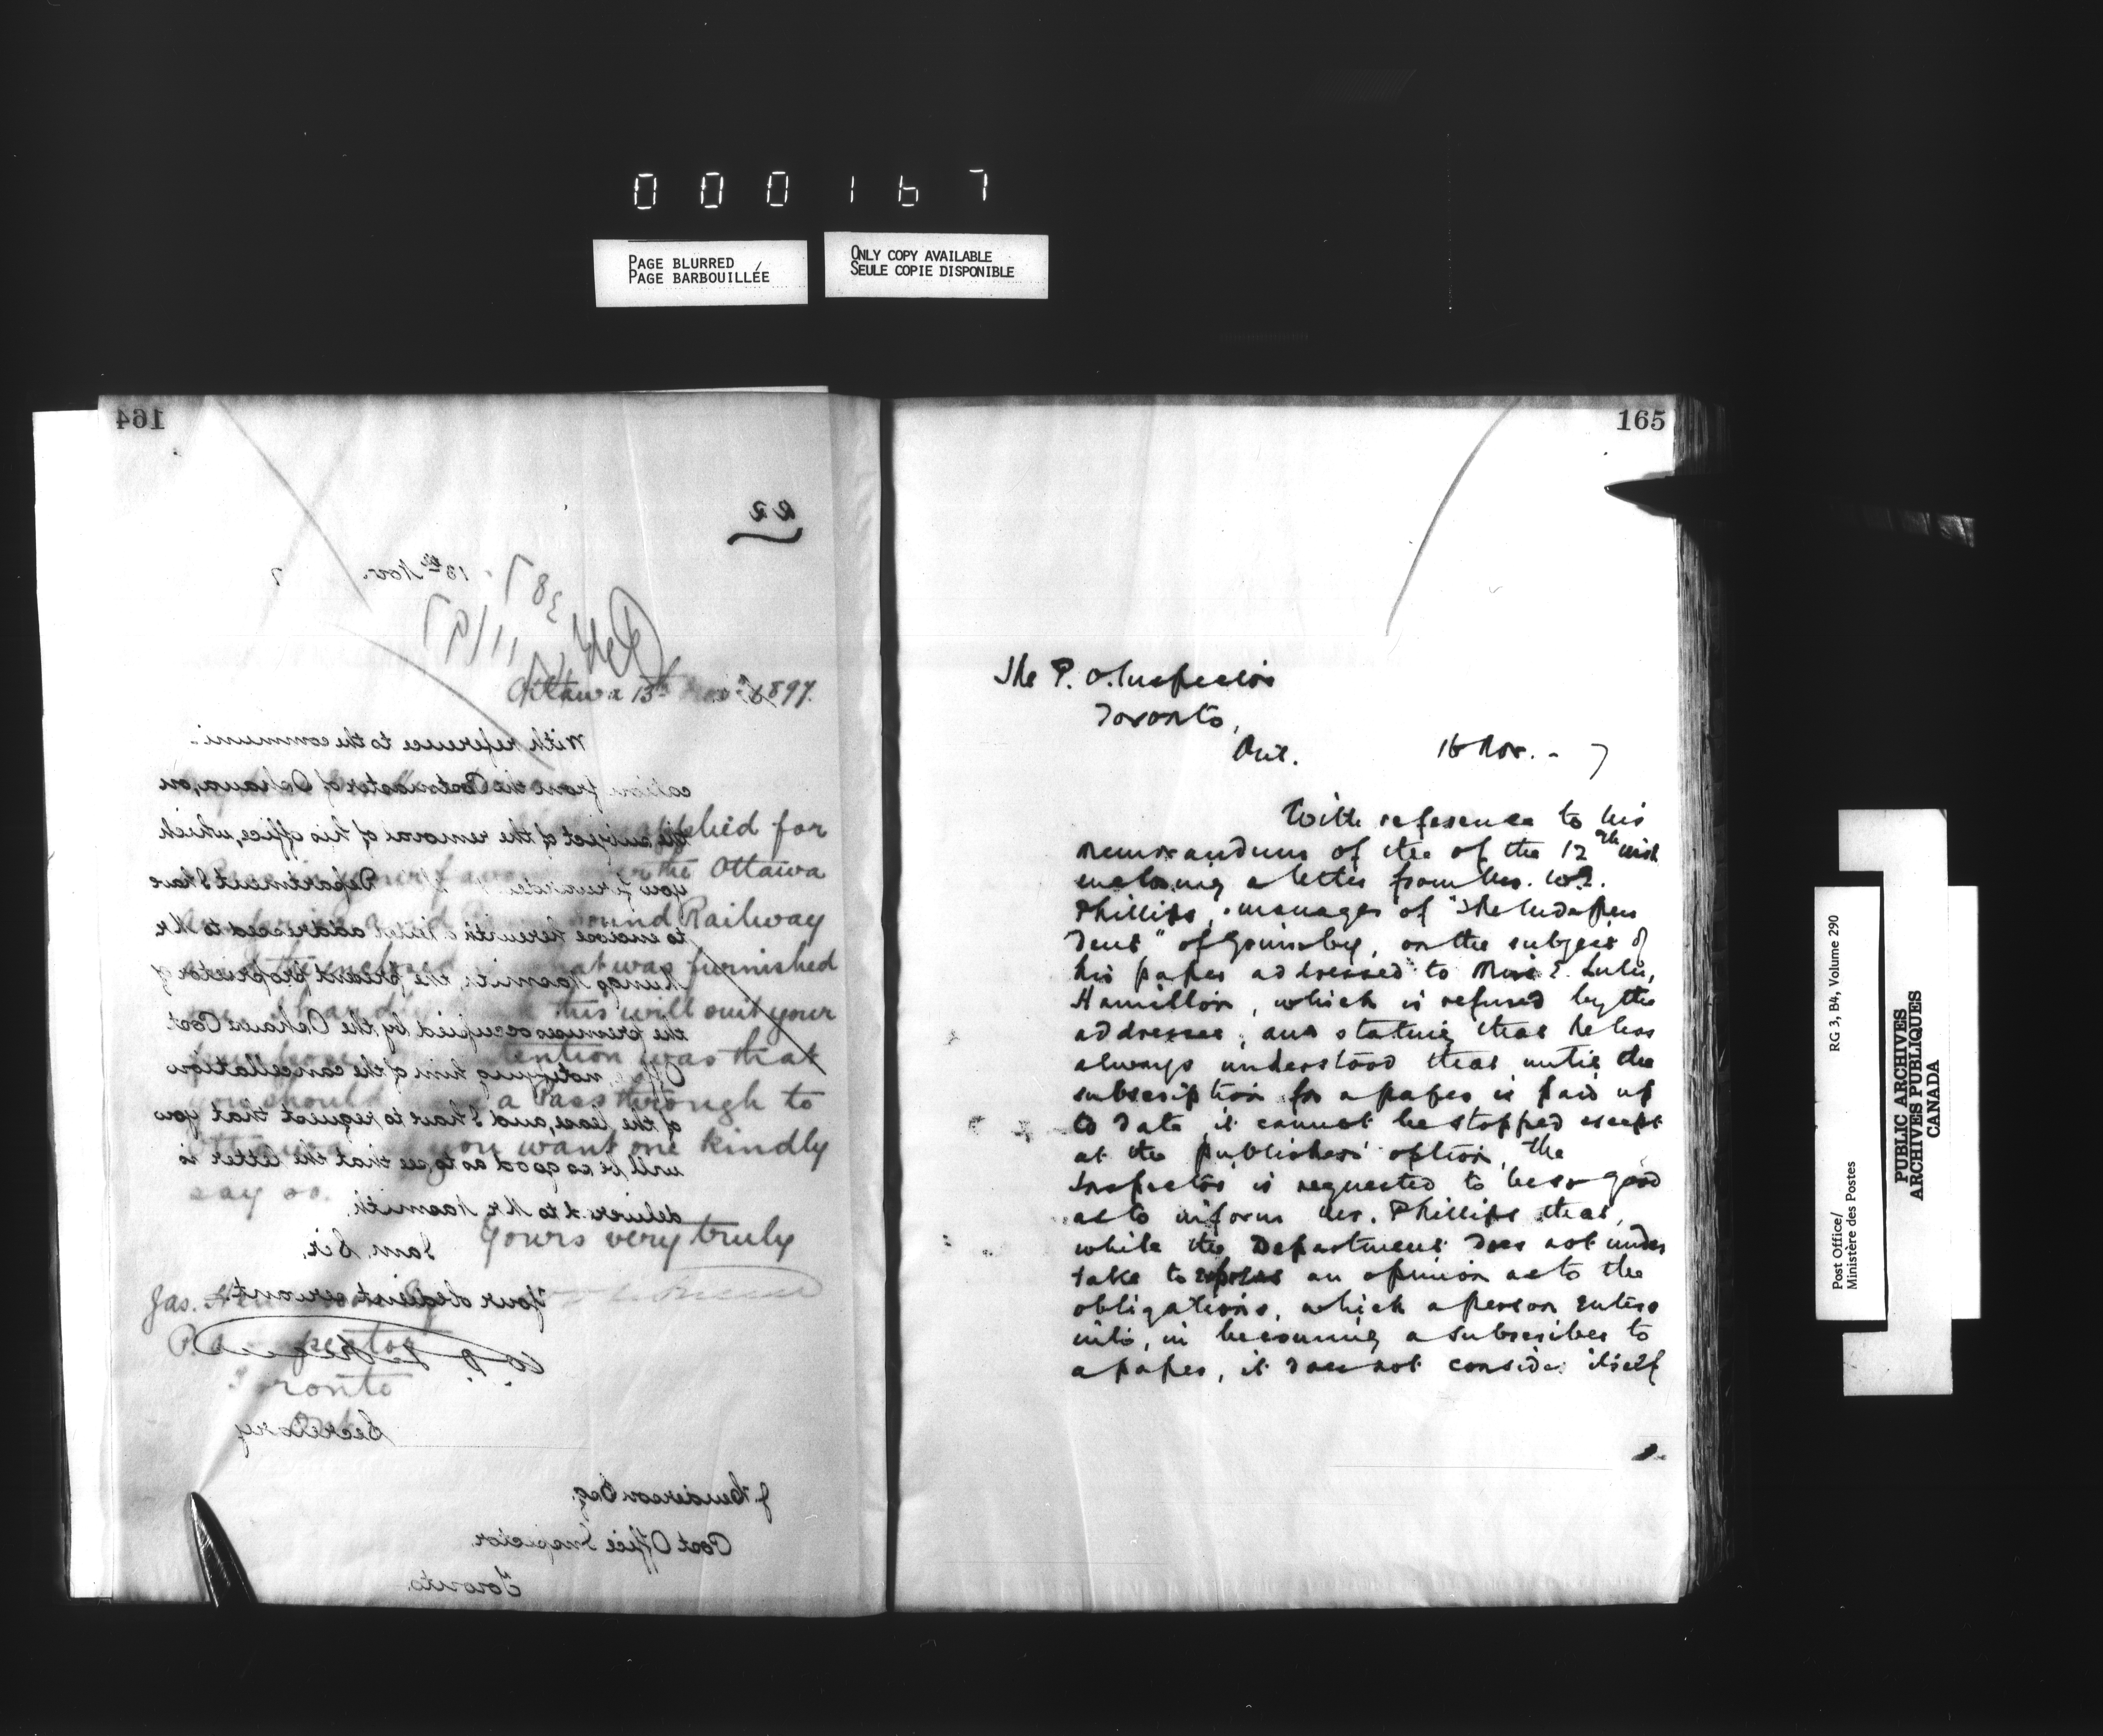 000167
PAGE BLURRED
PAGE BARBOUILLÉE
ONLY COPY AVAILABLE
SEULE COPIE DISPONIBLE
164
22
13th Nov. 7
Ottawa 13th 1897.
With reference to the communi-
cation from the Postmaster of Oshawa, on
the subject of the removal of his office, which
you forwarded Department I have
to enclose herewith a letter addressed to Mr
Naomith, the present proprietor of
the premises occupied by the Oshawa Post
Office, notifying him of the cancellation
of the lease, and I have to request that you
will be so good as to see that the letter is
delivered to Mr Naomith.
I am, Sir,
Your obedient servant.
Secretary
J Henderson Esq.
Post Office Inspector
Toronto.
applied for
the Ottawa
Sound Railway
that was furnished
this will suit your
intention was that
you should a pass through to
you want one kindly
say so.
Yours very truly
Jas.
Toronto
165
The P. O. Inspector
Toronto,
Ont. 16 Nov. - 7
With reference to his
memorandum of the of the 12th inst
enclosing a letter from Mr. W.
Phillips, manager of "The Indepen
dent" of Grimsby, on the subject of
his paper addressed to Miss E. Lulu,
Hamilton, which is refused by the
addressee, and stating that he has
always understood that until the
subscription for a paper is paid up
to date it cannot be stopped except
at the publishers' option, the
Inspector is requested to be so good
as to inform Mr. Phillips that,
while the Department does not under
take to express an opinion as to the
obligations, which a person enters
into, in becoming a subscriber to
a paper, it does not consider itself
Post Office/ RG 3, B4, Volume 290
Ministère des Postes
PUBLIC ARCHIVES
ARCHIVES PUBLIQUES
CANADA